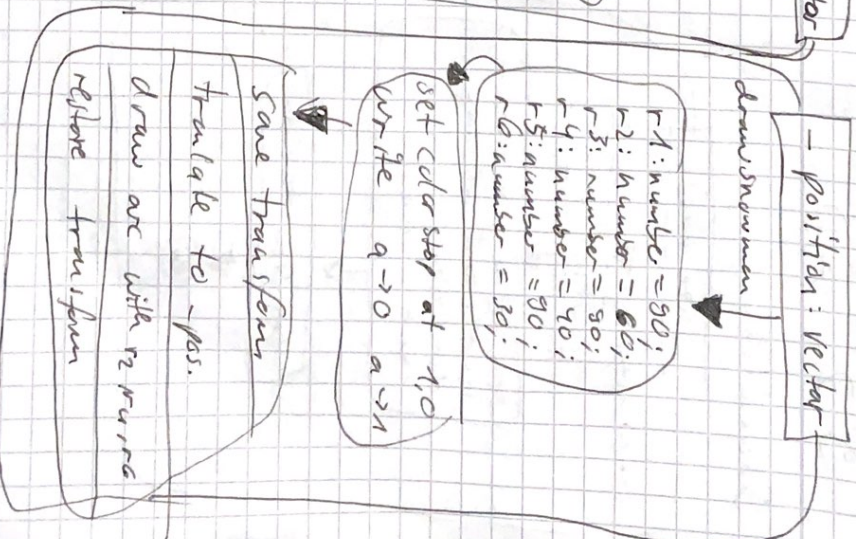 tor
- position: vector
drawsnowman
r1: number = 90;
r2: number = 60;
r3: number = 80;
r4: number = 40;
r5: number = 90;
r6: number = 30;
set colorstop at 1,0
write a→0 a→1
save transform
translate to _pos.
draw arc with r2
restore transform